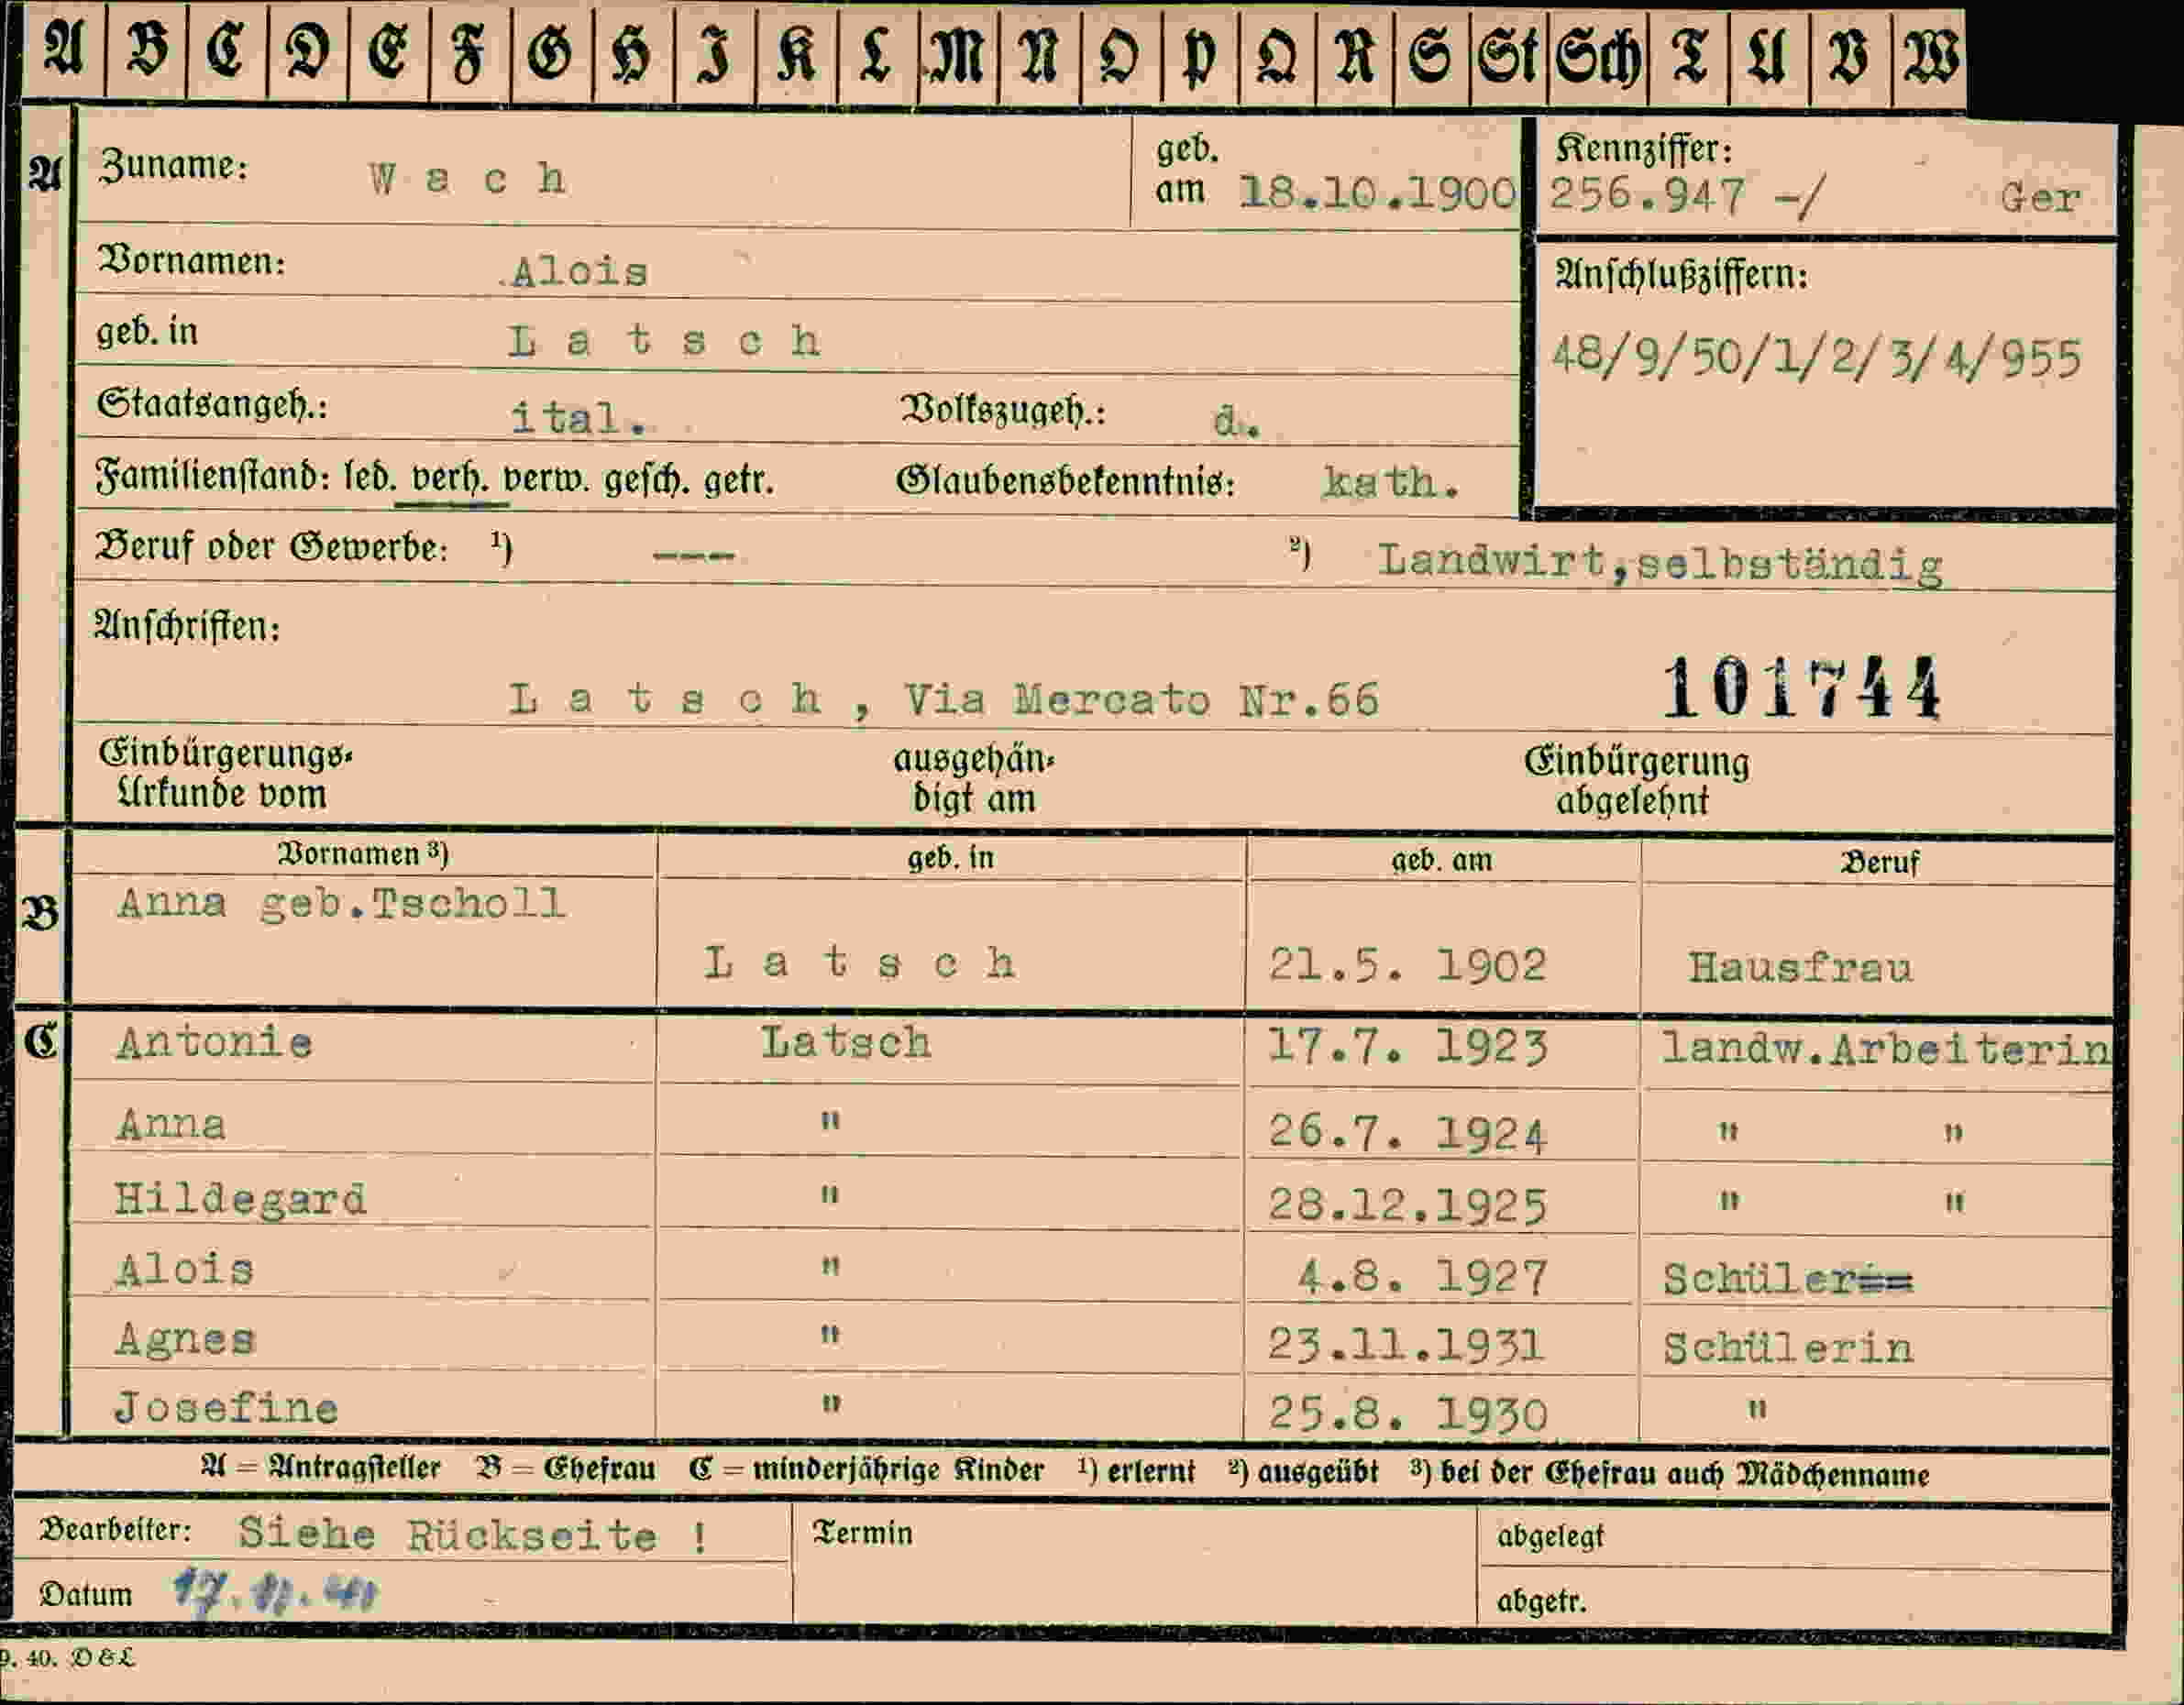 A B C D E F G H I K L M N O P Q R S St Sch T U V W
A Zuname: Wach geb. am 18.10.1900 Kennziffer: 256.947 -/ Ger
Vornamen: Alois Anschlußziffern:
geb. in Latsch 48/9/50/1/2/3/4/955
Staatsangeh.: ital. Volkszugeh.: d.
Familienstand: led. verh. verw. gesch. getr. Glaubensbekenntnis: kath.
Beruf oder Gewerbe: ¹) --- ²) Landwirt,selbständig
Anschriften:
Latsch, Via Mercato Nr.66 101744
Einbürgerungs- ausgehän- Einbürgerung
Urkunde vom digt am abgelehnt
Vornamen ³) geb. in geb. am Beruf
B Anna geb.Tscholl
Latsch 21.5. 1902 Hausfrau
C Antonie Latsch 17.7. 1923 landw.Arbeiterin
Anna " 26.7. 1924 " "
Hildegard " 28.12.1925 " "
Alois " 4.8. 1927 Schüler
Agnes " 23.11.1931 Schülerin
Josefine " 25.8. 1930 "
A = Antragsteller B = Ehefrau C = minderjährige Kinder ¹) erlernt ²) ausgeübt ³) bei der Ehefrau auch Mädchenname
Bearbeiter: Siehe Rückseite ! Termin abgelegt
Datum abgetr.
9. 40. D&L